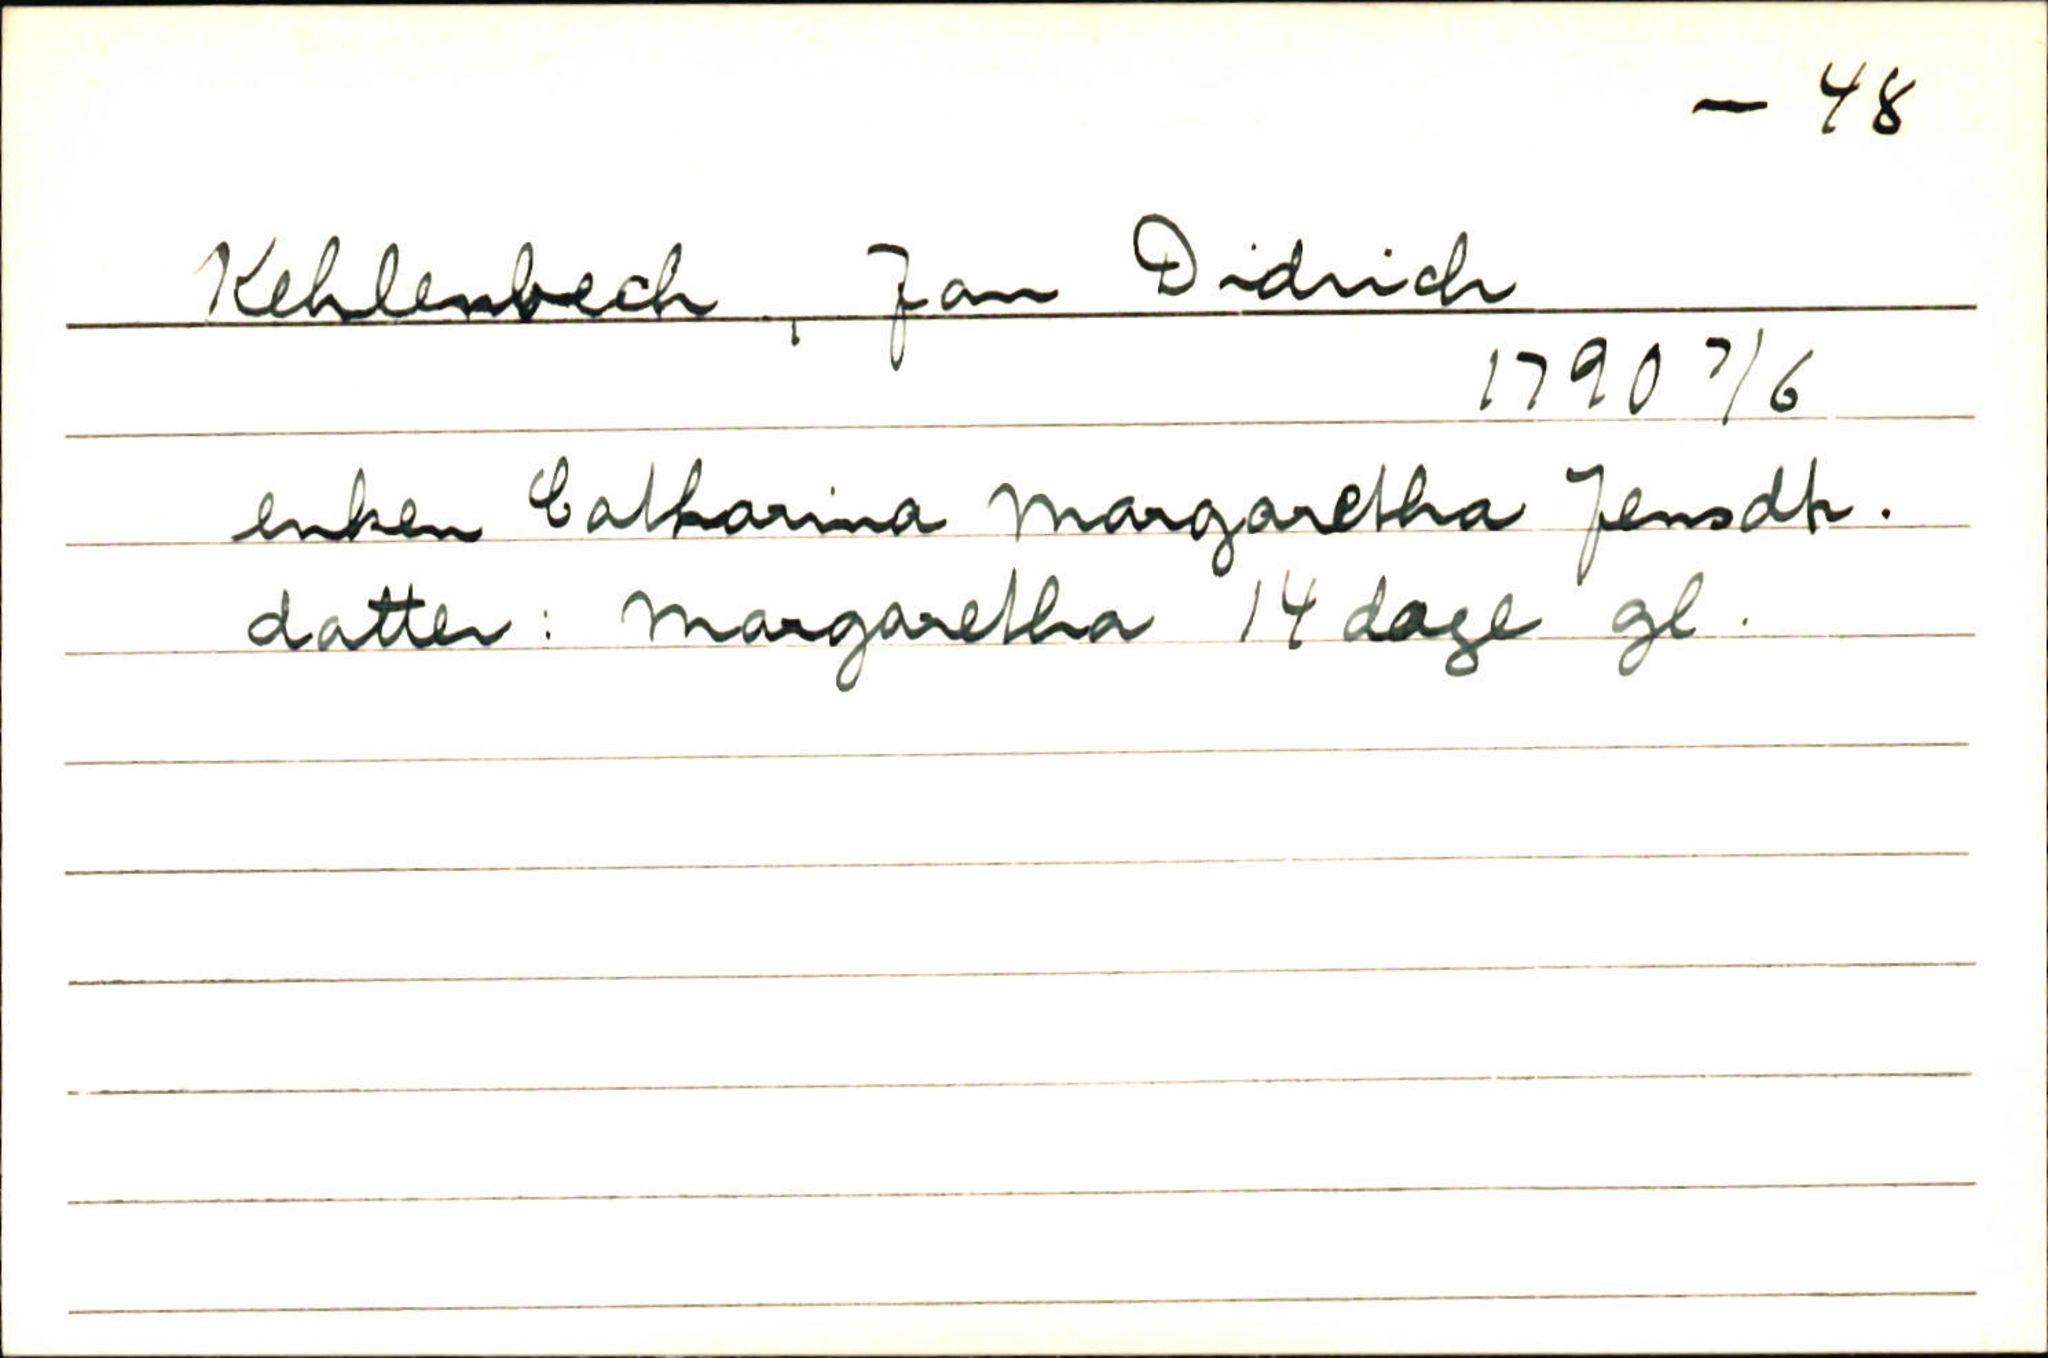 — 48
Kehlenbech, Jan Didrich
1790 7/6
enken Catharina Margaretha Jensdtr.
datter: Margaretha 14 dage gl.